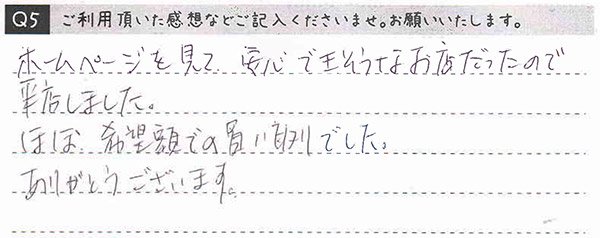 Q5 ご利用頂いた感想などご記入くださいませ。お願いいたします。
ホームページを見て、安心できそうなお店だったので
来店しました。
ほぼ、希望額での買い取りでした。
ありがとうございます。